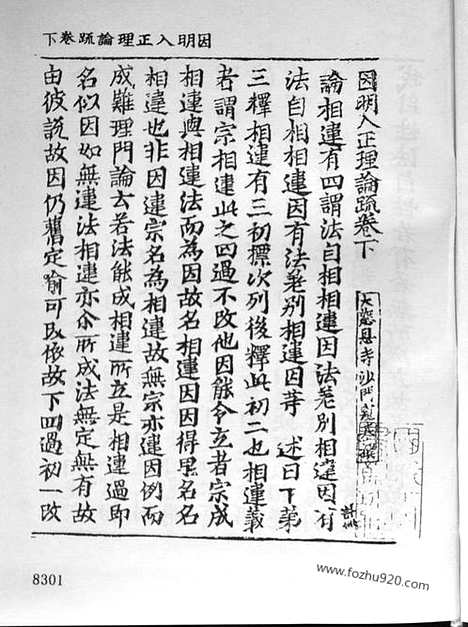 因明入正理論疏卷下
因明入正理論疏卷下
大慈恩寺沙門
論相違有四謂法自相相違因法差別相違因有
法自相相違因有法差別相違因等　述曰下第
三釋相違有三初標次列後釋此初二也相違義
者謂宗相違此之四過不改他因能令立者宗成
相違與相違法而為因故名相違因因得果名名
相違也非因違宗名為相違故無宗亦違因例而
成難理門論云若法能成相違所立是相違過即
名似因如無違法相違亦尒所成法無定無有故
由彼說故因仍舊定喻可改依故下四過初一改
8301
www.fozhu920.com